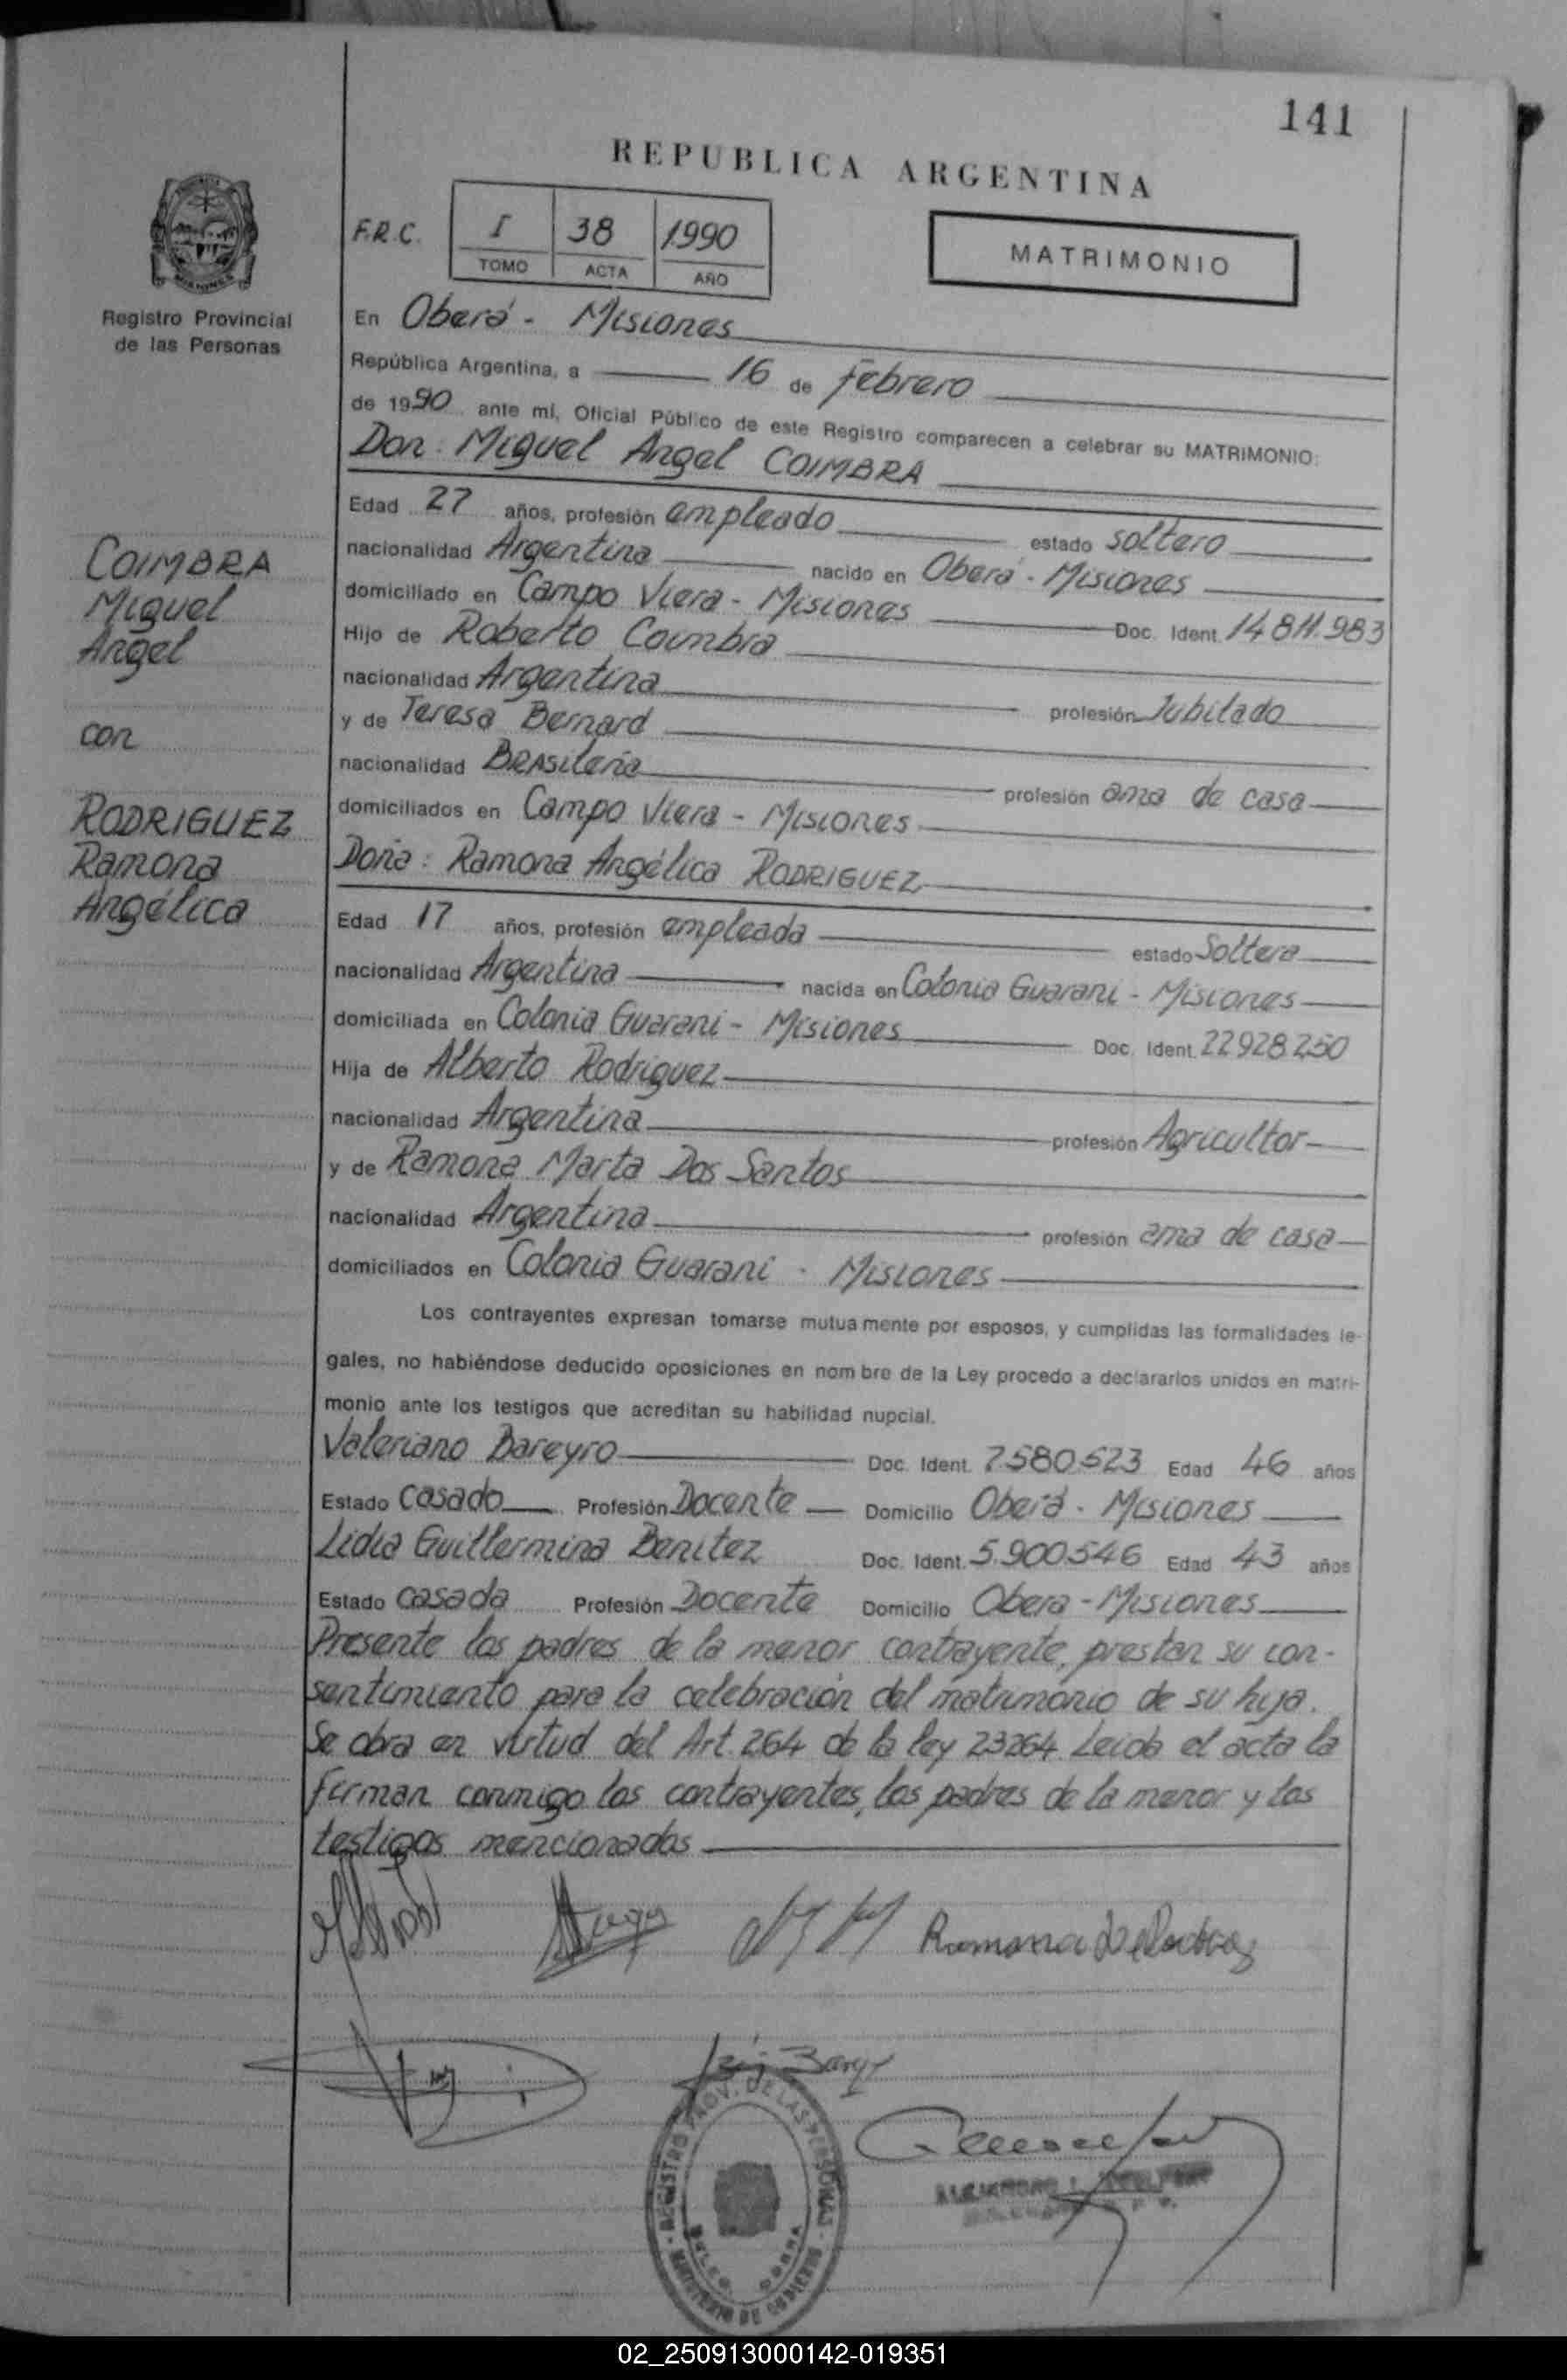 141
REPUBLICA ARGENTINA
F.R.C.
I 38 1990
TOMO ACTA AÑO
MATRIMONIO
Registro Provincial
de las Personas
En Oberá - Misiones
República Argentina, a 16 de Febrero
de 1990 ante mi, Oficial Público de este Registro comparecen a celebrar su MATRIMONIO:
Don: Miguel Angel COIMBRA
Edad 27 años, profesión empleado estado soltero
nacionalidad Argentina nacido en Oberá - Misiones
domiciliado en Campo Viera - Misiones Doc. Ident. 14.811.983
Hijo de Roberto Coimbra
nacionalidad Argentina profesión Jubilado
y de Teresa Bernard
nacionalidad BRASileña profesión ama de casa
domiciliados en Campo Viera - Misiones
Doña: Ramona Angélica RODRIGUEZ
Edad 17 años, profesión empleada estado Soltera
nacionalidad Argentina nacida en Colonia Guarani - Misiones
domiciliada en Colonia Guarani - Misiones Doc. Ident. 22928250
Hija de Alberto Rodriguez
nacionalidad Argentina profesión Agricultor
y de Ramona Marta Dos Santos
nacionalidad Argentina profesión ama de casa
domiciliados en Colonia Guarani - Misiones
COIMBRA
Miguel
Angel
con
RODRIGUEZ
Ramona
Angélica
Los contrayentes expresan tomarse mutuamente por esposos, y cumplidas las formalidades le-
gales, no habiéndose deducido oposiciones en nombre de la Ley procedo a declararlos unidos en matri-
monio ante los testigos que acreditan su habilidad nupcial.
Valeriano Bareyro Doc. Ident. 7.580.523 Edad 46 años
Estado casado Profesión Docente Domicilio Oberá - Misiones
Lidia Guillermina Benitez Doc. Ident. 5.900.546 Edad 43 años
Estado casada Profesión Docente Domicilio Obera - Misiones
Presente los padres de la menor contrayente, prestan su con-
sentimiento para la celebración del matrimonio de su hija.
Se obra en virtud del Art. 264 de la ley 23264. Leida el acta la
firman conmigo los contrayentes, los padres de la menor y los
testigos mencionados
REGISTRO PROV. DE LAS PERSONAS
MINISTERIO DE GOBIERNO
02_250913000142-019351